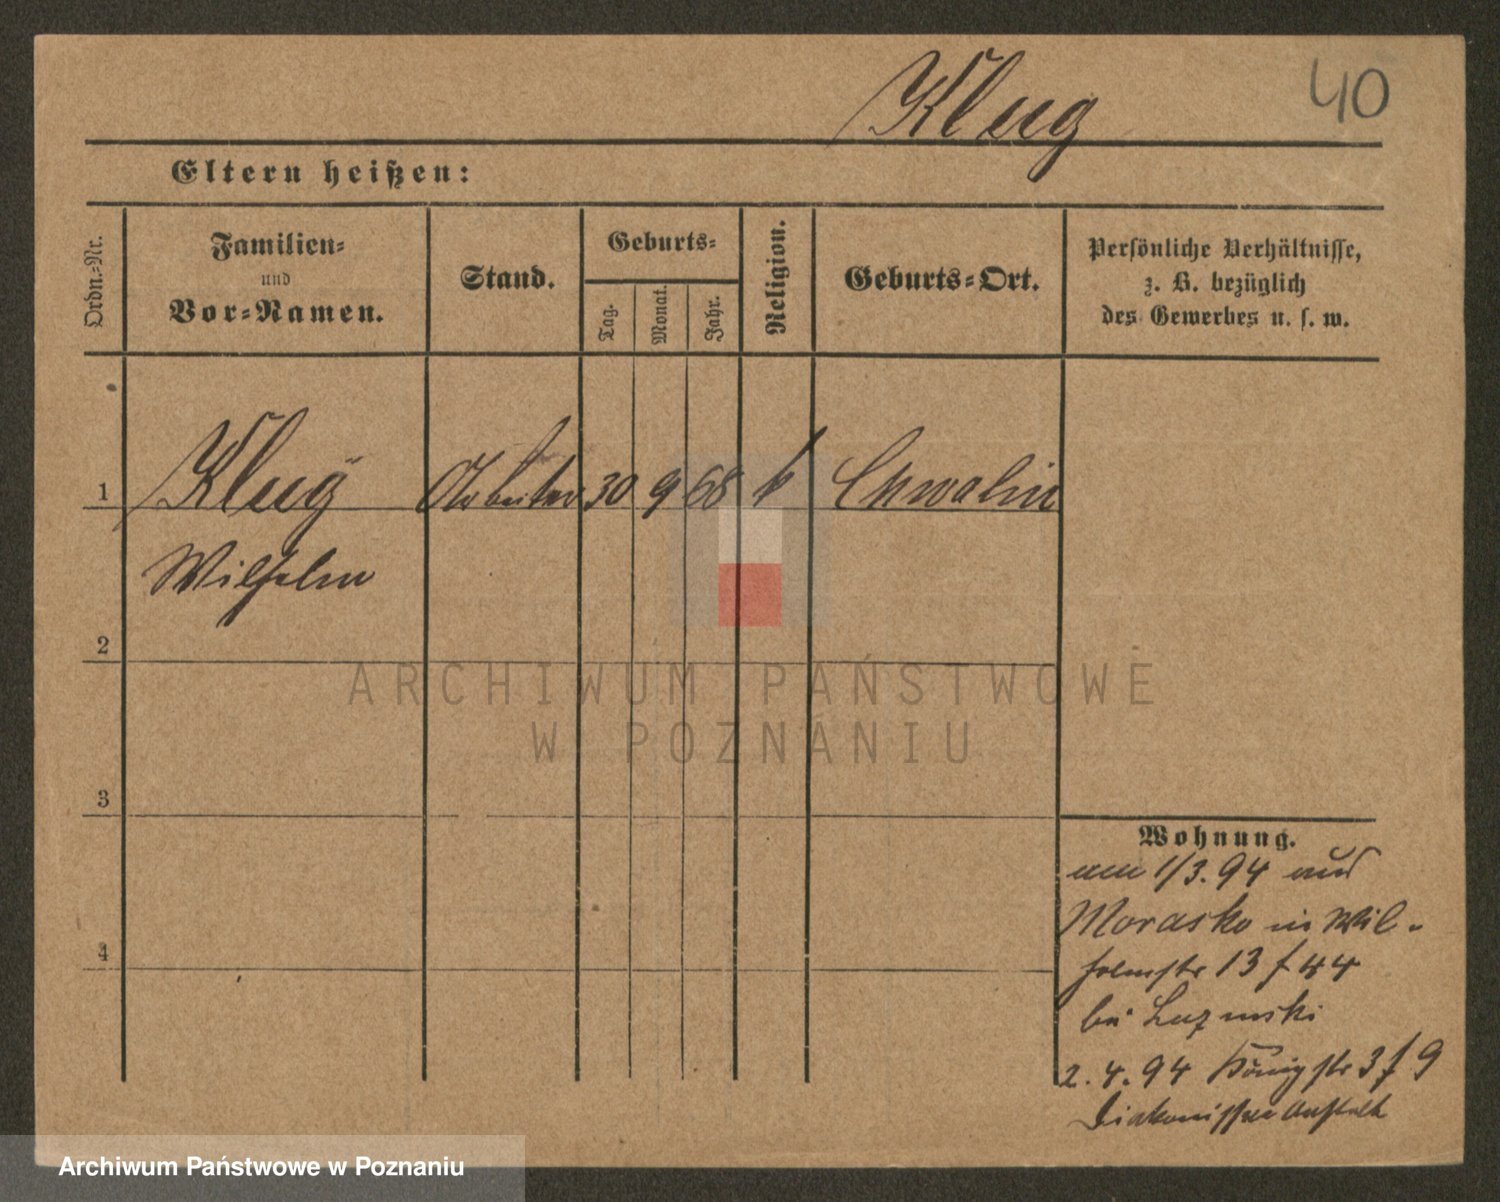 Klug
40
Eltern heißen:
Ordn.-Nr.
Familien-
und
Vor-Namen.
Stand.
Geburts-
Tag.
Monat.
Jahr.
Religion.
Geburts-Ort.
Persönliche Verhältnisse,
z. B. bezüglich
des Gewerbes u. s. w.
1
Klug Arbeiter 30 9 68 k Chwalin
Wilhelm
2
ARCHIWUM PAŃSTWOWE
W POZNANIU
3
4
Wohnung.
am 1/3. 94 aus
Morasko in Wil-
helmstr 13 f 44
bei
2. 4. 94 Königstr 3 f 9
Diakonissen Anstalt
Archiwum Państwowe w Poznaniu